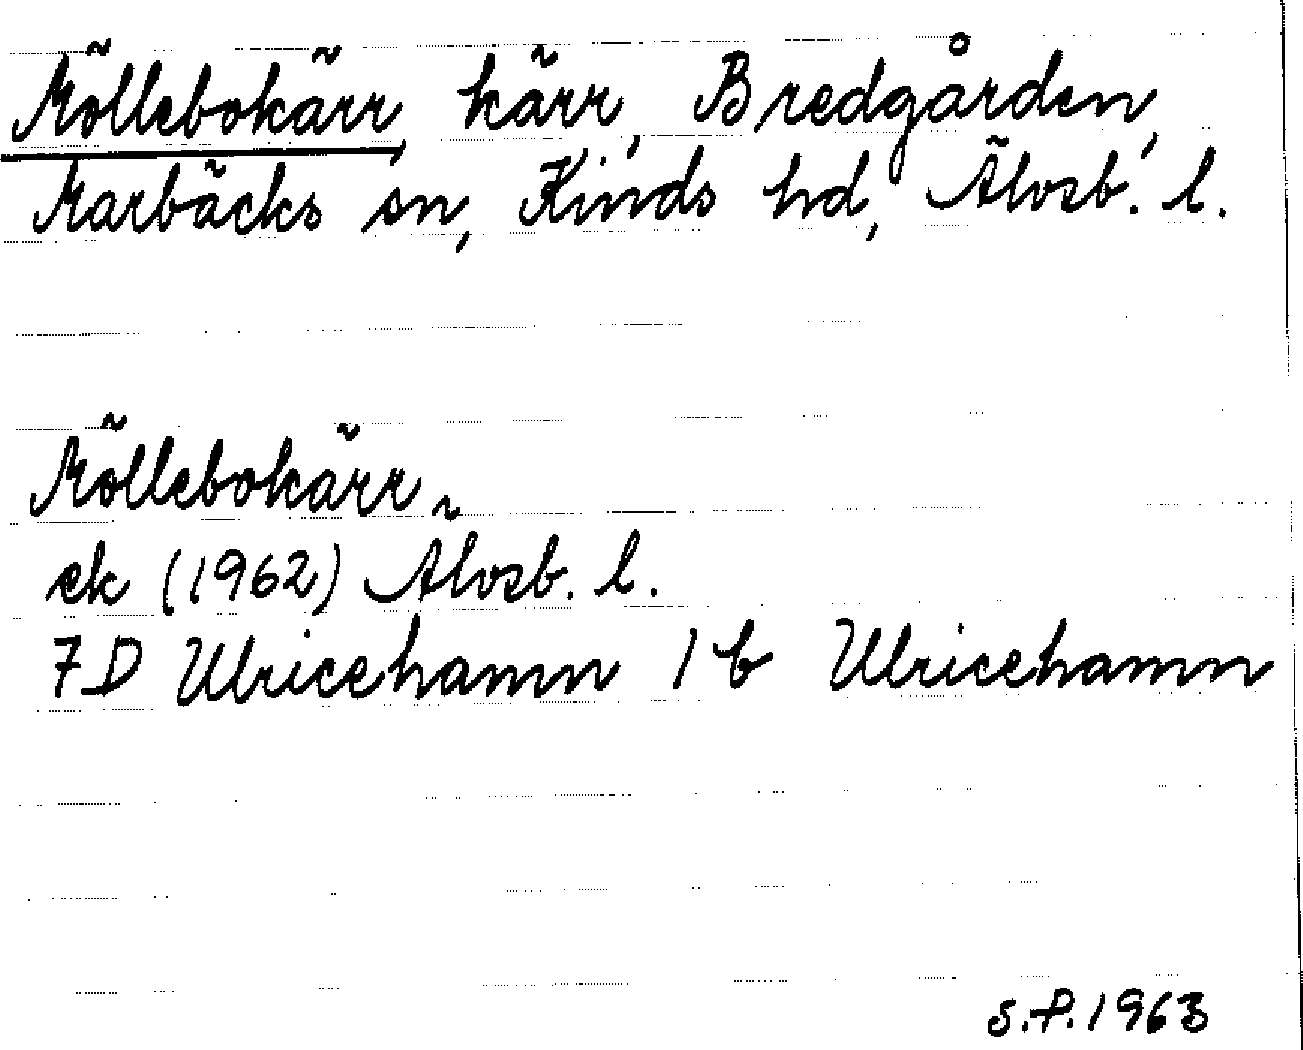 Möllebokärr, kärr, Bredgården,
Marbäcks sn, Kinds hd, Älvsb. l.
Möllebokärr
ek (1962) Älvsb. l.
7D Ulricehamn 1 b Ulricehamn
S.P. 1963